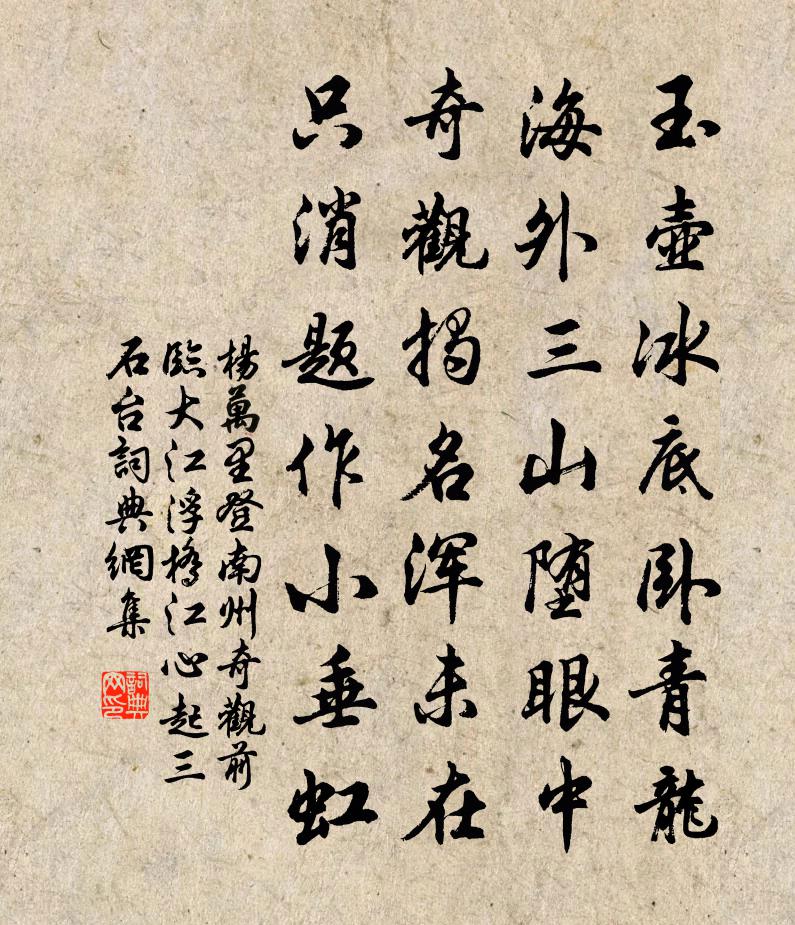 玉壺冰底卧青龍
海外三山堕眼中
奇觀揭名浑未在
只消题作小垂虹
楊萬里登南州奇觀前
臨大江浮橋江心起三
石台詞典網集
詞典网印